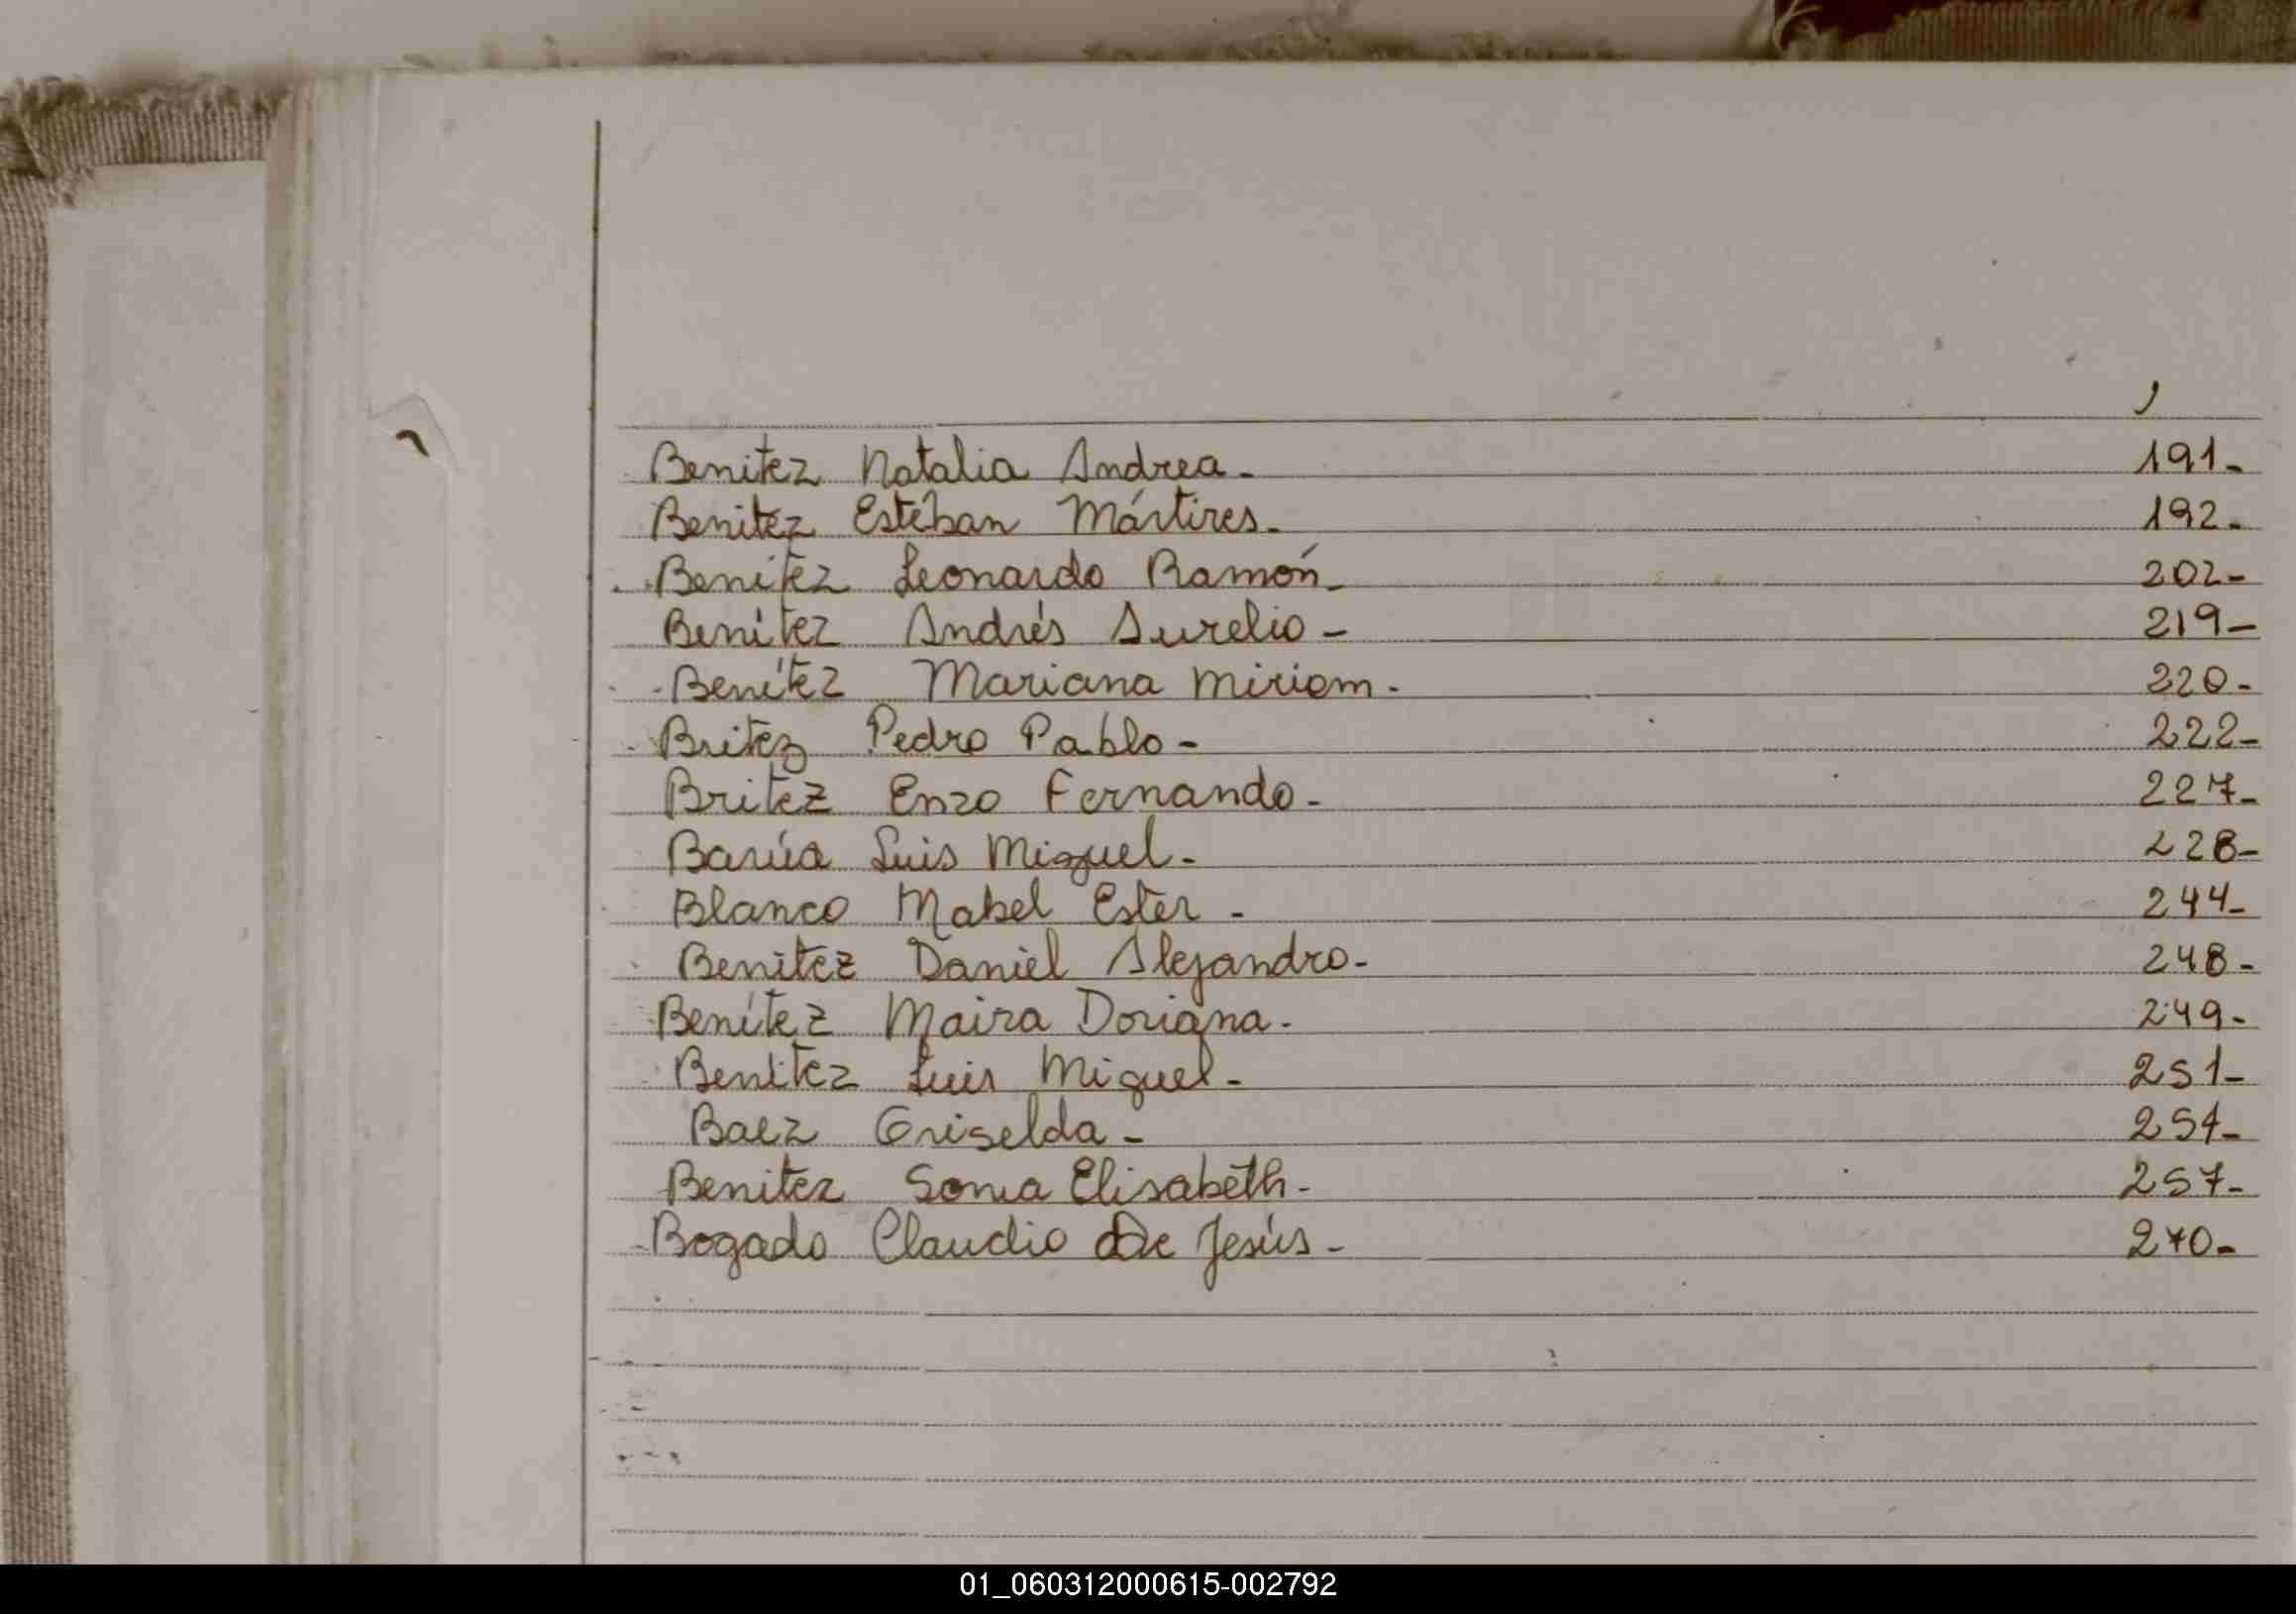 Benitez Natalia Andrea - 191-
Benitez Estéban Mártires - 192-
Benítez Leonardo Ramón - 202-
Benítez Andrés Aurelio - 219-
Benítez Mariana Miriam - 220-
Britez Pedro Pablo - 222-
Britez Enzo Fernando - 227-
Barúa Luis Miguel - 228-
Blanco Mabel Ester - 244-
Benitez Daniel Alejandro - 248-
Benítez Maira Doriana - 249-
Benitez Luis Miguel - 251-
Baez Griselda -
Benitez Sonia Elisabeth - 257-
Bogado Claudio De Jesús - 270-
01_060312000615-002792